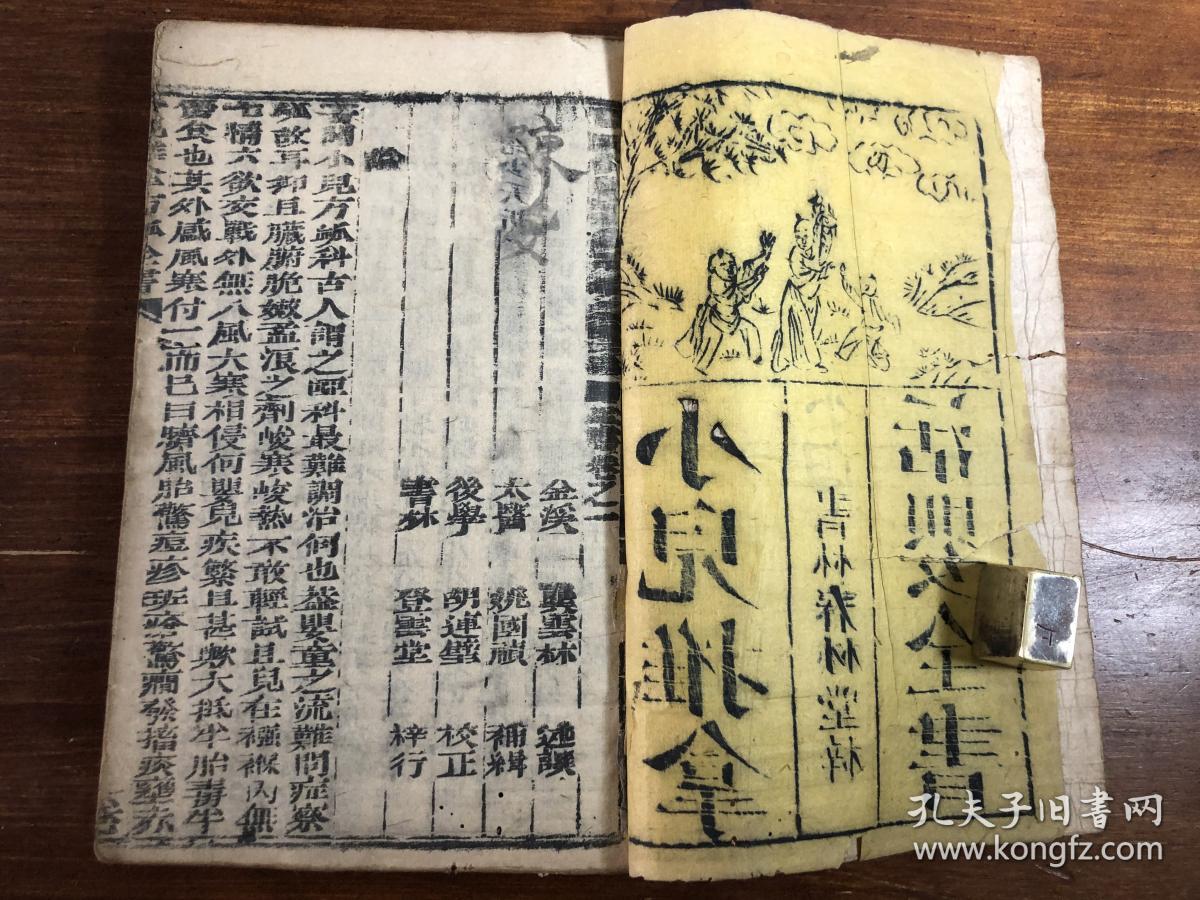 小兒推拿
書林春林堂梓
活嬰全書
卷之一
金溪 龔雲林 述譔
太醫 姚國禎 補緝
後學 胡連璧 校正
書林 登雲堂 梓行
論
調小兒方脉科古人謂之啞科最難調治何也蓋嬰童之流難問症察
脉故耳抑且臟腑脆嫩孟浪之劑峻寒峻熱不敢輕試且兒在襁褓內無
七情六欲交戰外無八風大寒相侵何嬰兒疾繁且甚歟大抵半胎毒半
傷食也其外感風寒付一而已曰臍風胎驚痘疹斑疹驚癇發搐痰壅赤
孔夫子旧书网
www.kongfz.com